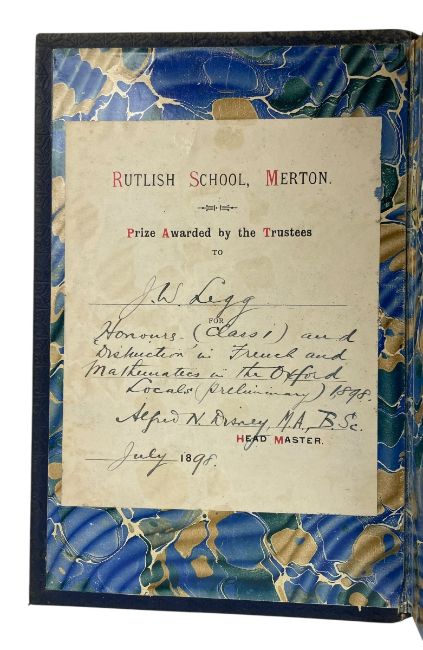 RUTLISH SCHOOL, MERTON.
Prize Awarded by the Trustees
TO
J. W. Legg
FOR
Honours (Class 1) and
Distinction in French and
Mathematics in the Oxford
Locals (Preliminary) 1898.
Alfred N. Disney, M.A., B.Sc.
HEAD MASTER.
July 1898.